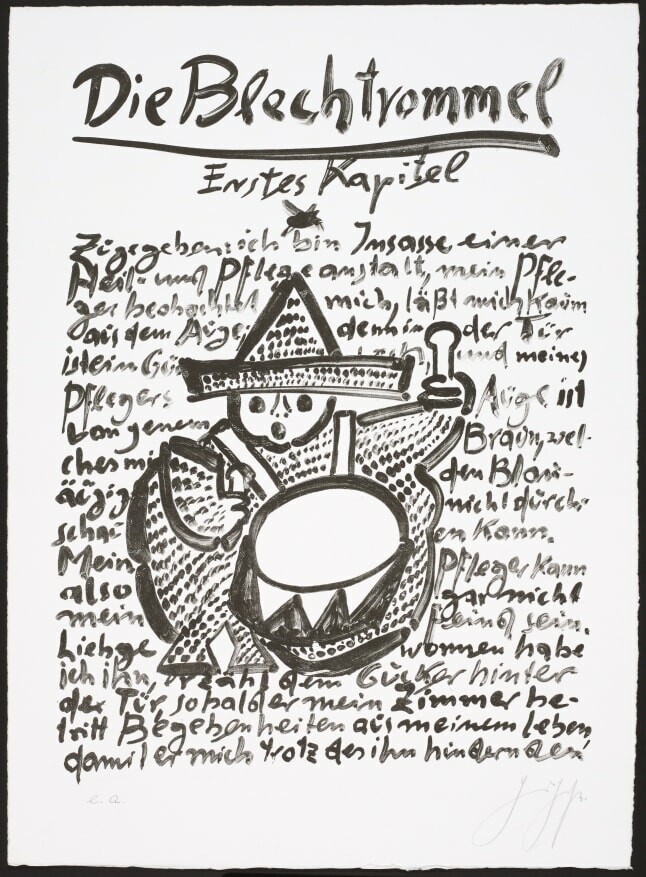 Die Blechtrommel
Erstes Kapitel
Zugegeben: ich bin Insasse einer
Heil- und Pflegeanstalt, mein Pfle-
ger beobachtet mich, läßt mich kaum
aus dem Auge; denn in der Tür
ist ein Gu und meines
Pflegers Auge ist
von jenem Braun, wel-
ches mi den Blau-
äugig nicht durch-
schau en kann.
Mein Pfleger kann
also gar nicht
mein Feind sein.
Liebge wonnen habe
ich ihn, rzähl dem Gucker hinter
der Tür, sobald er mein Zimmer be-
tritt Begebenheiten aus meinem Leben
damit er mich trotz des ihn hindernden
e.a.